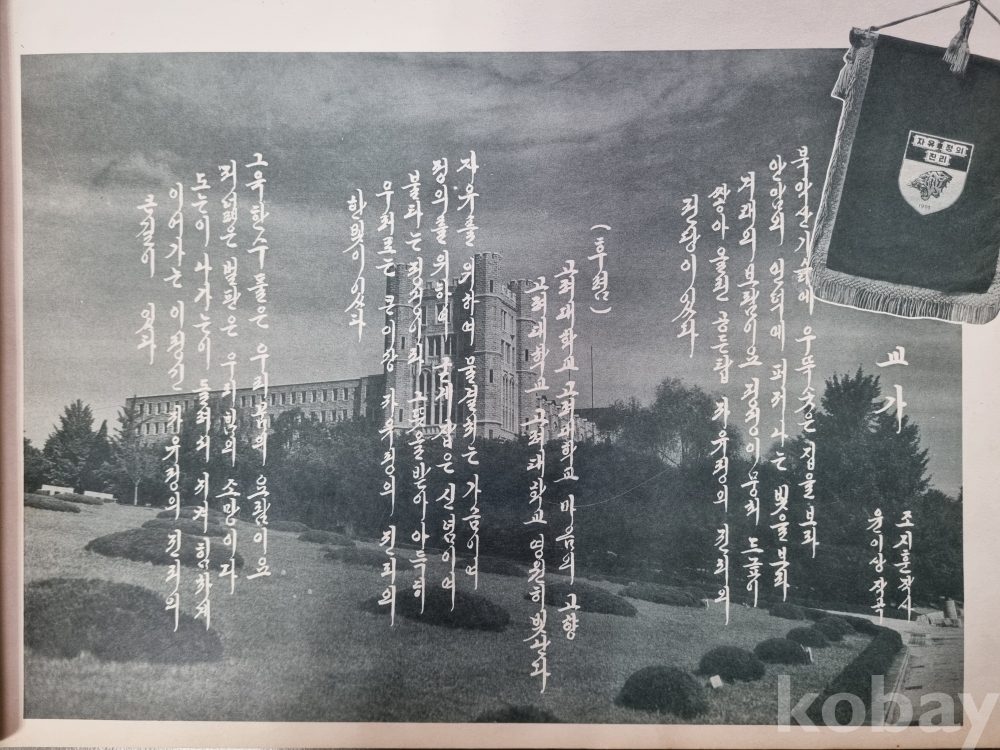 자유 정의
진리
1905
교가
조지훈 작사
윤이상 작곡
북악산 기슭에 우뚝 솟은 집을 보라
안암의 언덕에 퍼져나는 빛을 보라
겨레의 보람이요 정성이 뭉쳐 드높이
쌓아 올린 공든탑 자유 정의 진리의
전당이 있다
(후렴)
고려대학교 고려대학교 마음의 고향
고려대학교 고려대학교 영원히 빛난다
자유를 위하여 물결치는 가슴이여
정의를 위하여 굳게 잡은 신념이여
불타는 정성이라 그 뜻을 받아 아득히
우러르는 큰 이상 자유 정의 진리의
한빛이 있다
그윽한 수풀은 우리 꿈의 요람이요
저 넓은 벌판은 우리 힘의 소망이다
드는이 나가는이 지켜 힘차게
이어가는 이 정신 자유 정의 진리의
큰길이 있다
kobay